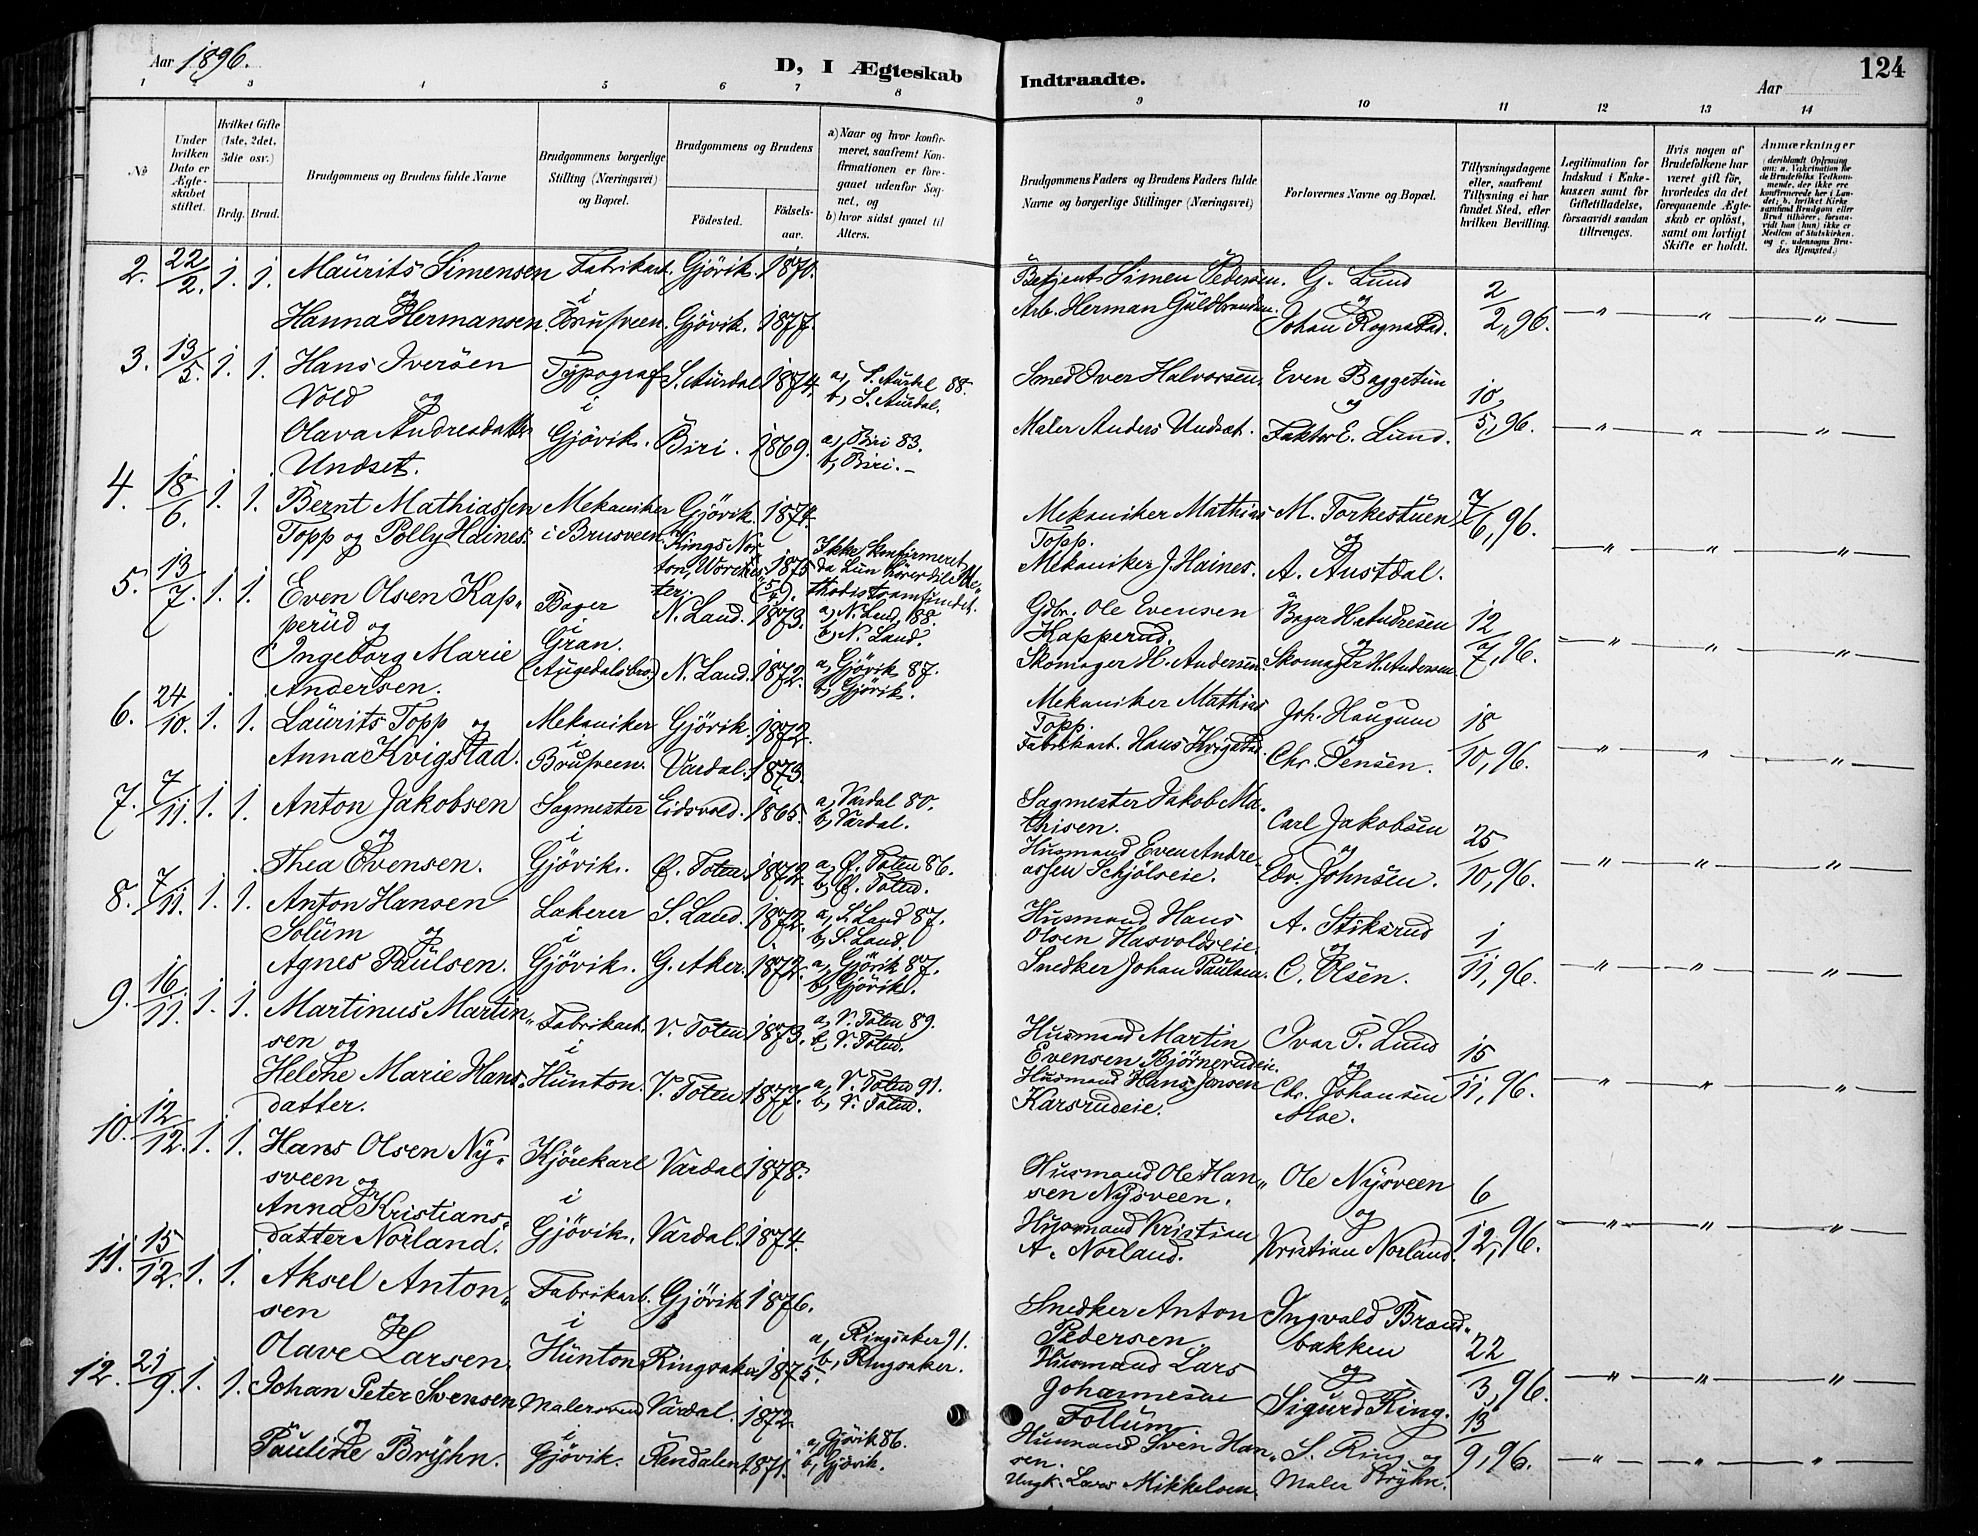 Aar 1896.
D, I Ægteskab Indtraadte.
Aar
124
1 2 3 4 5 6 7 8 9 10 11 12 13 14
No
Under hvilken Dato er Ægteskabet stiftet.
Hvilket Gifte (1ste, 2det, 3die osv.)
Brdg. Brud.
Brudgommens og Brudens fulde Navne
Brudgommens borgerlige Stilling (Næringsvei) og Bopæl.
Brudgommens og Brudens
Födested. Födsels-aar.
a) Naar og hvor konfirmeret, saafremt Konfirmationen er foregaaet udenfor Sognet, og
b) hvor sidst gaaet til Alters.
Brudgommens Faders og Brudens Faders fulde Navne og borgerlige Stillinger (Næringsvei)
Forlovernes Navne og Bopæl.
Tillysningsdagene eller, saafremt Tillysning ei har fundet Sted, efter hvilken Bevilling.
Legitimation for Indskud i Enkekassen samt for Giftetilladelse, forsaavidt saadan tiltrænges.
Hvis nogen af Brudefolkene har været gift för, hvorledes da det foregaaende Ægteskab er oplöst, samt om lovligt Skifte er holdt.
Anmærkninger
(deriblandt Oplysning om: a. Vakcination for de Brudefolks Vedkommende, der ikke ere konfirmerede her i Landet; b. hvilket Kirkesamfund Brudgom eller Brud tilhörer, forsaavidt han (hun) ikke er Medlem af Statskirken, og c. udensogns Brudes Hjemsted.)
2. 22/2. 1. 1. Maurits Simensen Fabrikarb. Gjövik. 1870. Betjent Simen Pedersen. G. Lund 2/2, 96. — " — " — " —
og i og
Hanna Hermansen. Brusveen. Gjövik. 1877. Arb. Herman Guldbrandsen. Johan Rognstad.
3. 13/5. 1. 1. Hans Iversen Typograf S. Aurdal 1874. a, S. Aurdal 88. Smed Iver Halvorsen. Even Baggetun 10/5, 96. — " — " — " —
Vold og i b, S. Aurdal. og
Olava Andreasdatter Gjövik. Biri. 1869. a, Biri 83. Maler Anders Undset. Faktor E. Lund.
Undset. b, Biri. –
4. 18/6. 1. 1. Bernt Mathiassen Mekaniker Gjövik. 1874. Mekaniker Mathias M. Torkestuen 7/6, 96. — " — " — " —
Topp og Polly Haines. i Brusveen. Kings Nor- Ikke konfirmeret Topp. og
ton, Worches- 1875 da hun hörer til Me- Mekaniker J. Haines. A. Austdal.
ter. (5/4). thodistsamfundet.
5. 13/7. 1. 1. Even Olsen Kap- Bager N. Land. 1873. a, N. Land, 188. Gdbr. Ole Evensen Bager H. Andresen 12/7, 96. — " — " — " —
perud og i Gran. b, N. Land. Kapperud. og
Ingeborg Marie (Augedalsbro) N. Land. 1872. a, Gjövik 87. Skomager H. Andersen. Skomager H. Andersen
Andersen. b, Gjövik.
6. 24/10. 1. 1. Laurits Topp og Mekaniker Gjövik. 1872. Mekaniker Mathias Joh. Haugum 18/10, 96. — " — " — " —
i Topp. og
Anna Kvigstad. Brusveen. Vardal. 1873. Fabrikarb. Hans Kvigstad. Chr. Jensen.
7. 7/11. 1. 1. Anton Jakobsen Sagmester Eidsvold. 1865. a, Vardal 80. Sagmester Jakob Ma- Carl Jakobsen 25/10, 96. — " — " — " —
og i b, Vardal. thisen. og
Thea Evensen. Gjövik. Ø. Toten. 1872. a, Ø. Toten 86. Husmand Even Andre- Edv. Johnsen.
b, Ø. Toten. assen Schjölseie.
8. 7/11. 1. 1. Anton Hansen Lakerer S. Land. 1872. a, S. Land 87. Husmand Hans A. Stiksrud 1/11, 96. — " — " — " —
Solum og i b, S. Land. Olsen Hasvoldseie. og
Agnes Paulsen. Gjövik. G. Aker. 1872. a, Gjövik 87. Snedker Johan Paulsen. C. Olsen.
b, Gjövik.
9. 16/11. 1. 1. Martinus Martin- Fabrikarb. V. Toten 1873. a, V. Toten 89. Husmand Martin Ivar P. Lund 15/11, 96. — " — " — " —
sen og i b, V. Toten. Evensen Björnerudeie. og
Helene Marie Hans- Hunton. V. Toten 1877. a, V. Toten 91. Husmand Hans Jensen Chr. Johansen
datter. b, V. Toten. Karsrudeie. Moe.
10. 12/12. 1. 1. Hans Olsen Ny- Kjörekarl Vardal 1878. Husmand Ole Han- Ole Nysveen 6/12, 96. — " — " — " —
sveen og i sen Nysveen. og
Anna Kristians- Gjövik. Vardal. 1874. Husmand Kristian Kristian Norland.
datter Norland. A. Norland.
11. 15/12. 1. 1. Aksel Anton- Fabrikarb. Gjövik 1876. Snedker Anton Ingvald Brand- 22/3, 96. — " — " — " —
sen og i Pedersen. bakken og
Olave Larsen. Hunton Ringsaker 1875. a, Ringsaker 91. Husmand Lars Sigurd Ring.
b, Ringsaker. Johannesen Follum
12. 21/9. 1. 1. Johan Peter Svensen Malersvend Vardal. 1872. Husmand Sven Han- S. Ring og 13/9, 96. — " — " — " —
og i sen.
Pauline Bryhn. Gjövik. Rendalen 1871. a, Gjövik 86. Ungk. Lars Mikkelsen. Maler Bryhn.
b, Gjövik.